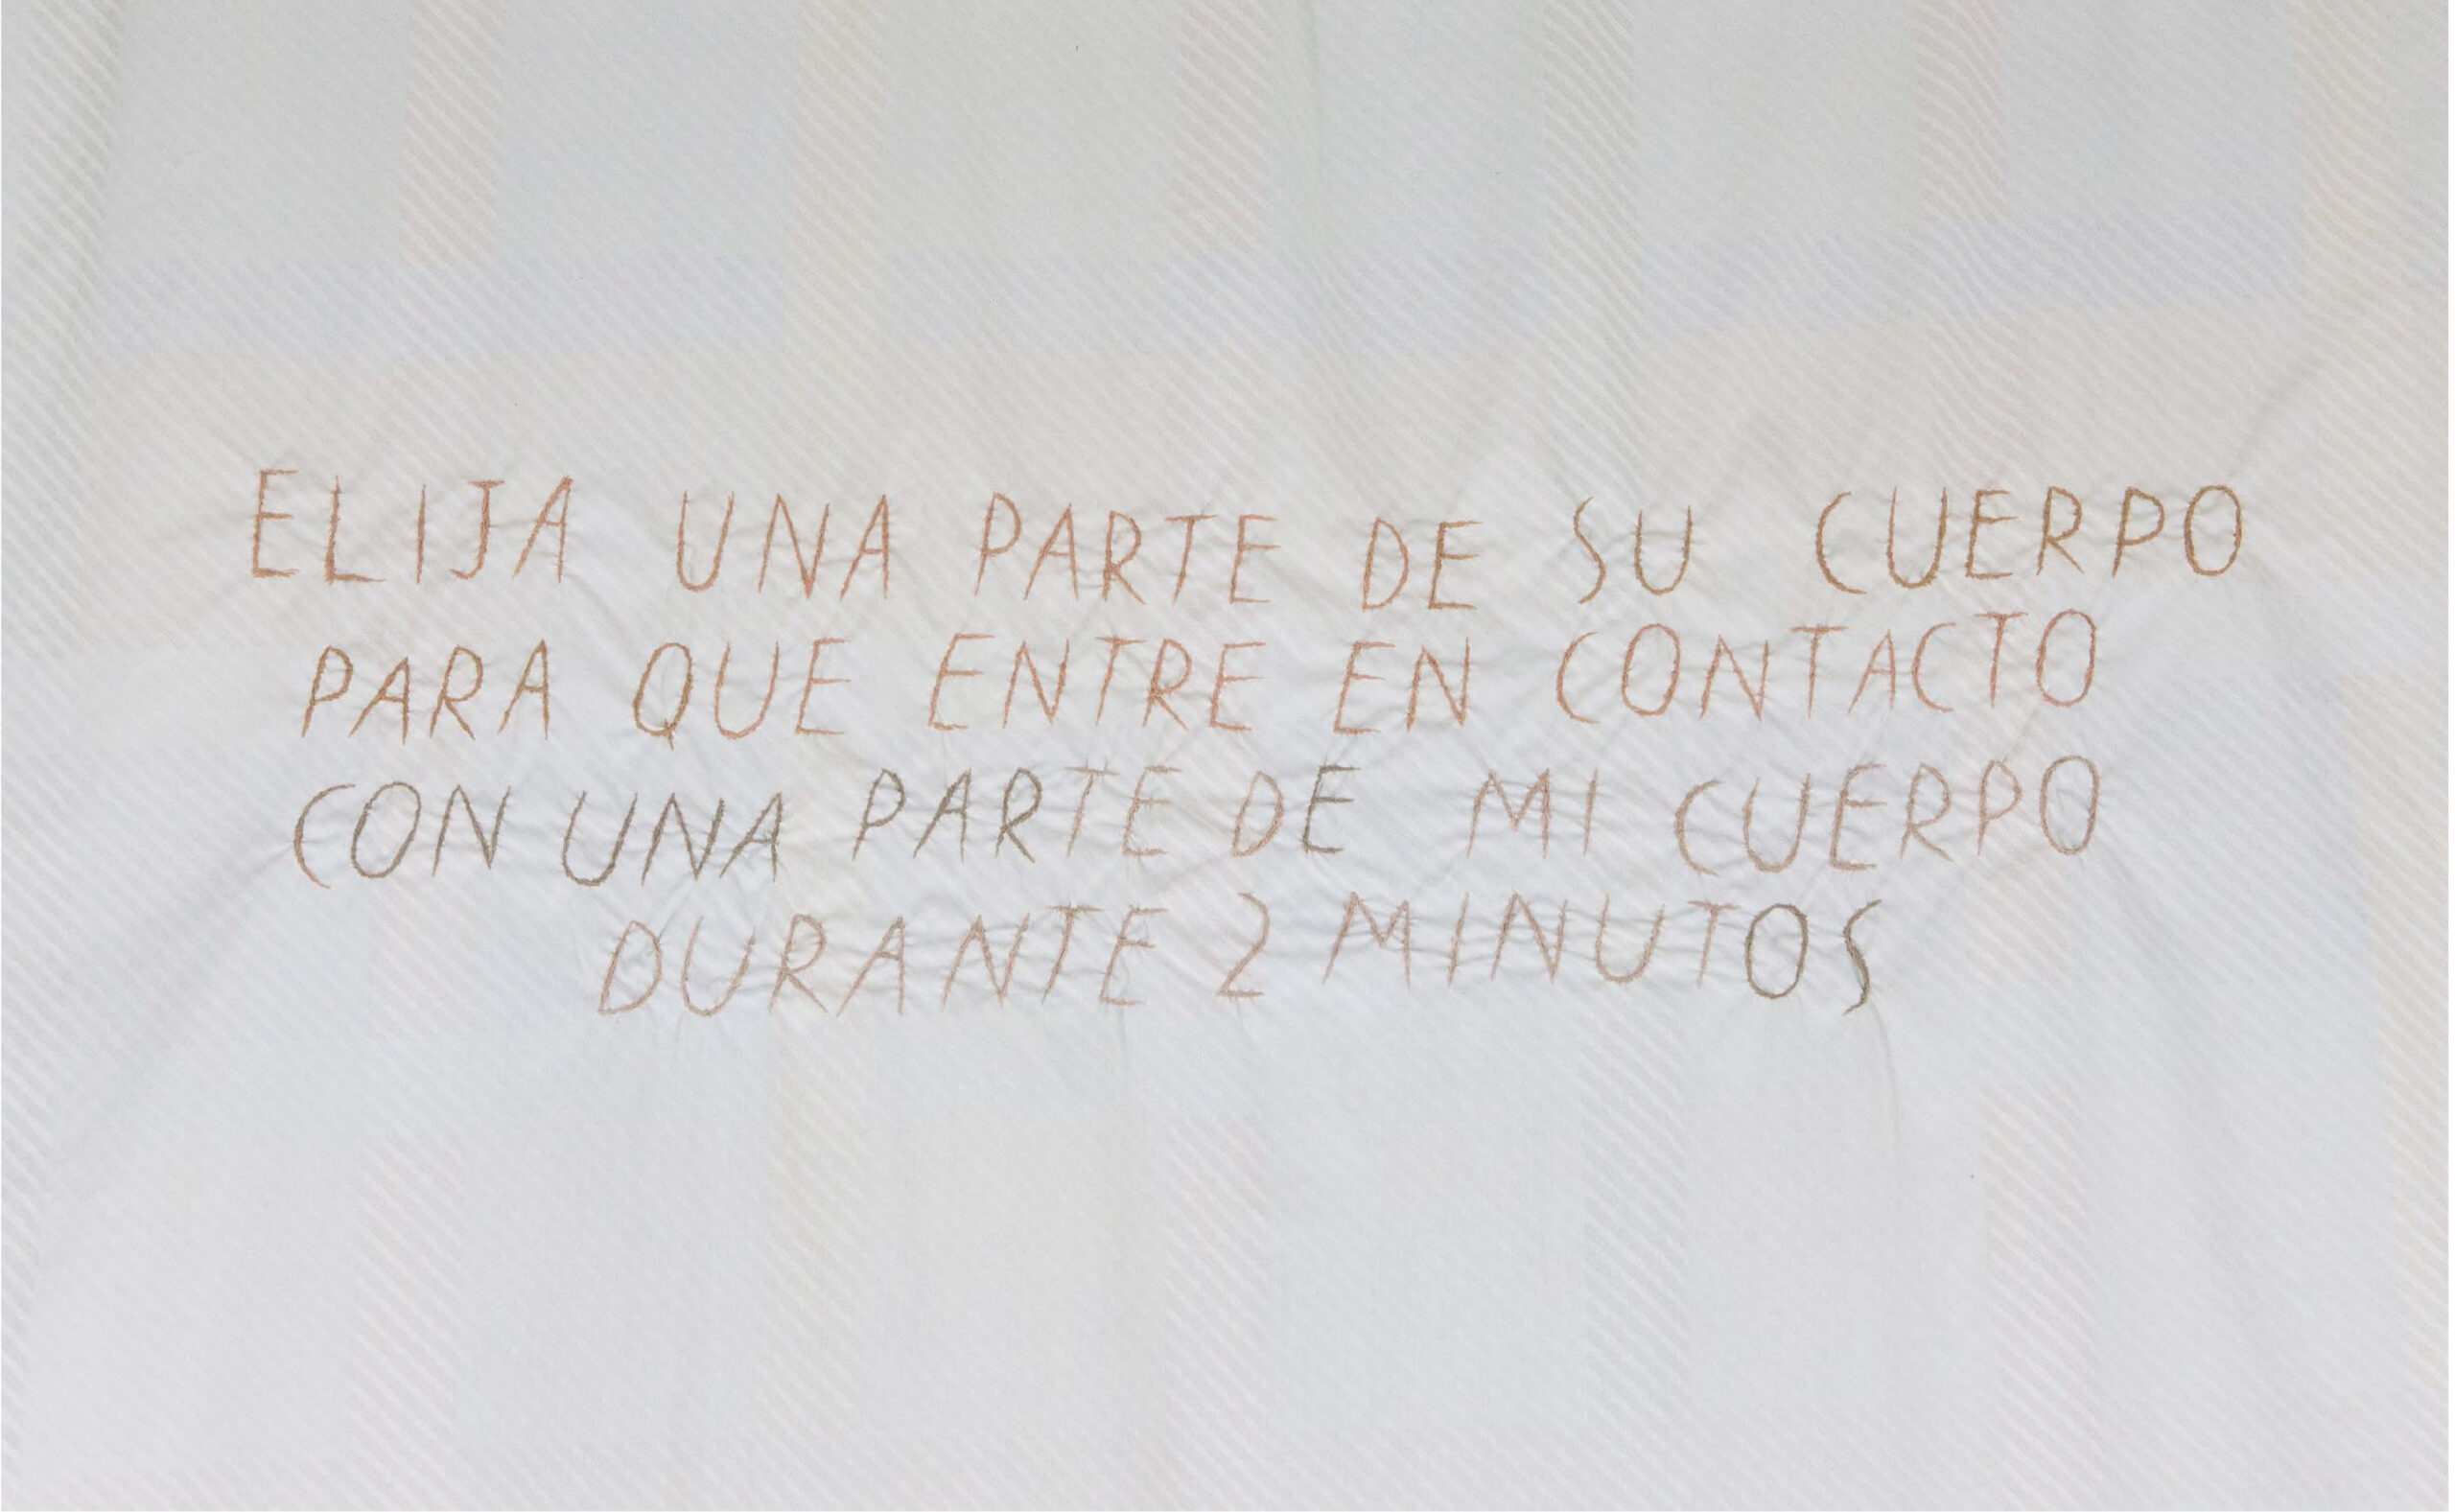 ELIJA UNA PARTE DE SU CUERPO
PARA QUE ENTRE EN CONTACTO
CON UNA PARTE DE MI CUERPO
DURANTE 2 MINUTOS